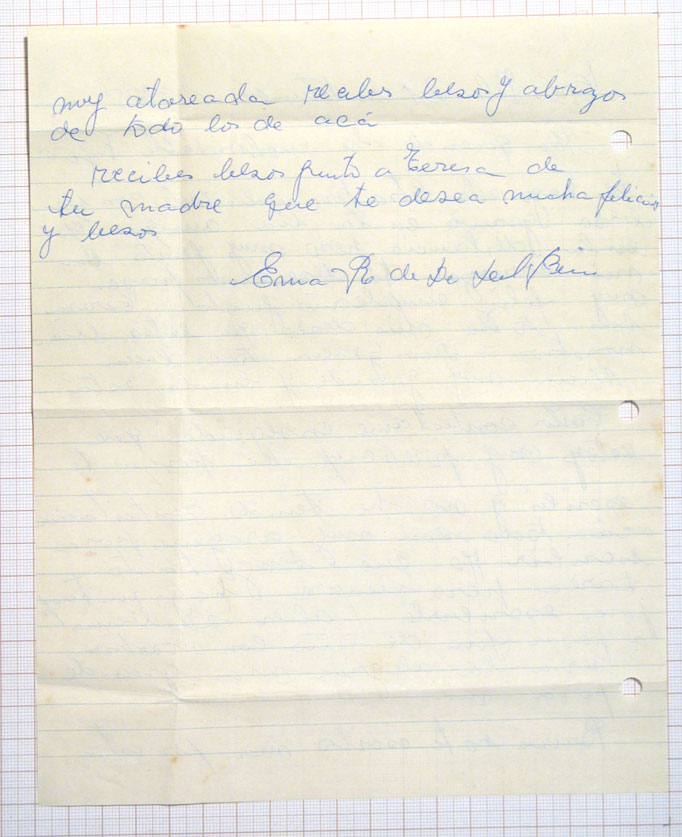 muy atareada recibes besos y abrazos
de todo los de acá
recibes besos junto a Teresa de
tu madre que te desea mucha felicidad
y besos
Erna R de De